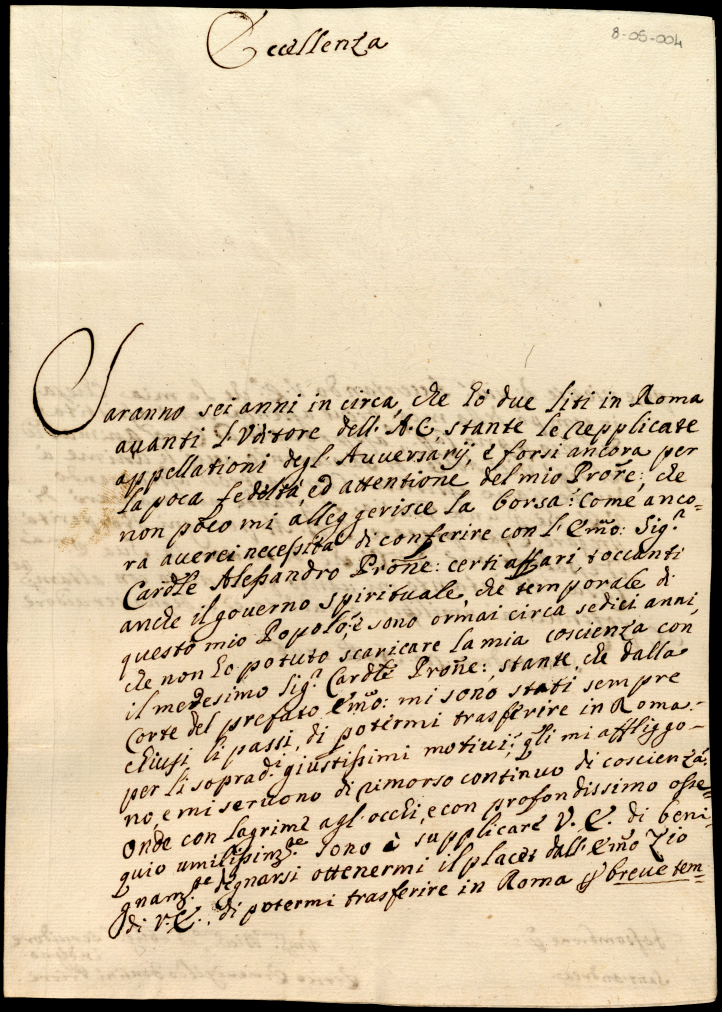 8-05-004
Eccellenza
Saranno sei anni in circa, che hò due liti in Roma
auanti l'Vditore dell'A.C., stante le repplicate
appellationi degl'Auuersarij, è forsi ancora per
la poca fedeltà, ed attentione del mio Prore:, che
non poco mi alleggerisce la borsa: Come anco-
ra auerei necessità di conferire con l'Emo: Sig.r
Cardle Alessandro Prone: certi affari, toccanti
anche il gouerno spirituale, che temporale di
questo mio Popolo; è sono ormai circa sedici anni,
che non hò potuto scaricare la mia coscienza con
il medesimo Sig.r Cardle Prone:, stante, che dalla
Corte del prefato Emo: mi sono stati sempre
chiusi li passi, di potermi trasferire in Roma:
per li sopradi giustissimi motiui; qli mi affliggo-
no, e mi seruono di rimorso continuo di coscienza:
Onde con lagrime agl'occhi, e con profondissimo osse-
quio umilissimte sono à supplicare V. E. di beni-
gnamte degnarsi ottenermi il placet dall'Emo Zio
di V. E., di potermi trasferire in Roma p breue tem-